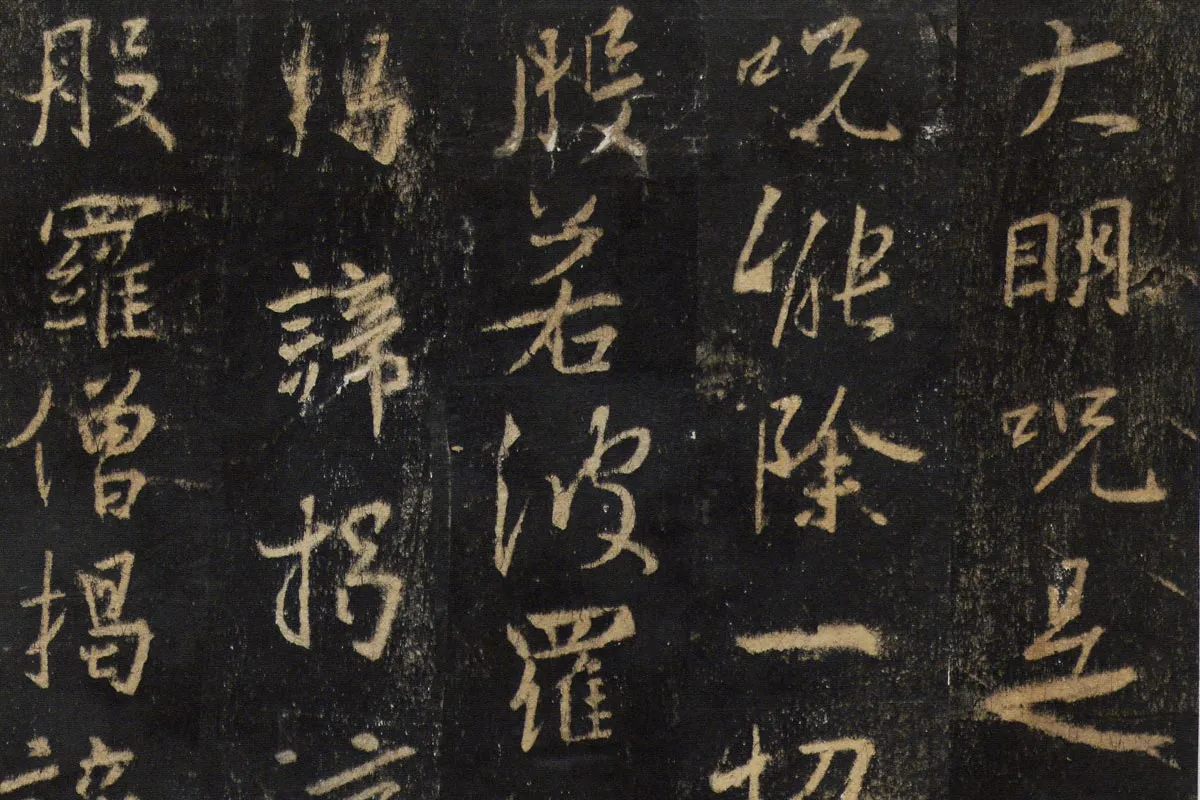 大明呪是
呪能除一切
般若波羅
揭諦揭
般羅僧揭